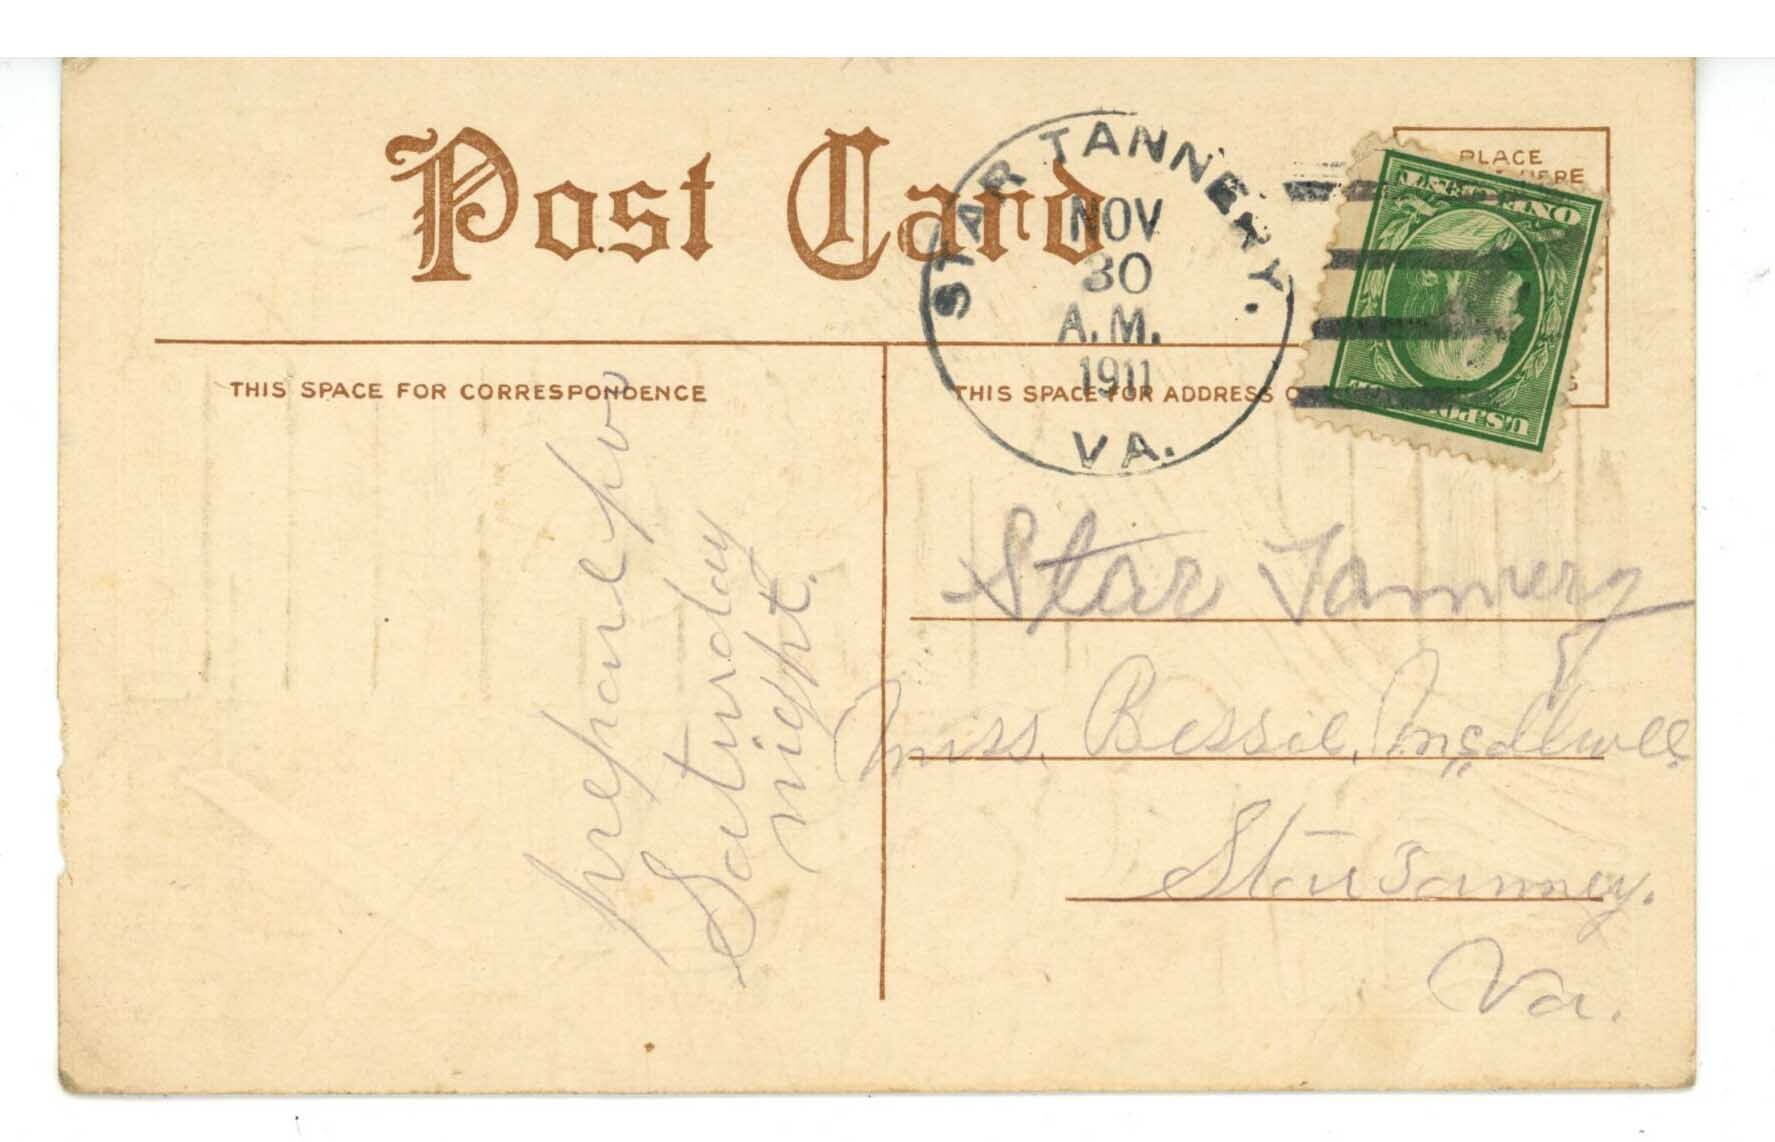 Post Card
STAR TANNERY.
NOV
30
A.M.
1911
VA.
PLACE
HERE
ONE CENT
U.S. POSTAGE
THIS SPACE FOR CORRESPONDENCE
THIS SPACE FOR ADDRESS O
prepare for
Saturday
night.
Star Tannery
Miss. Bessie.
Star Tannery.
Va.